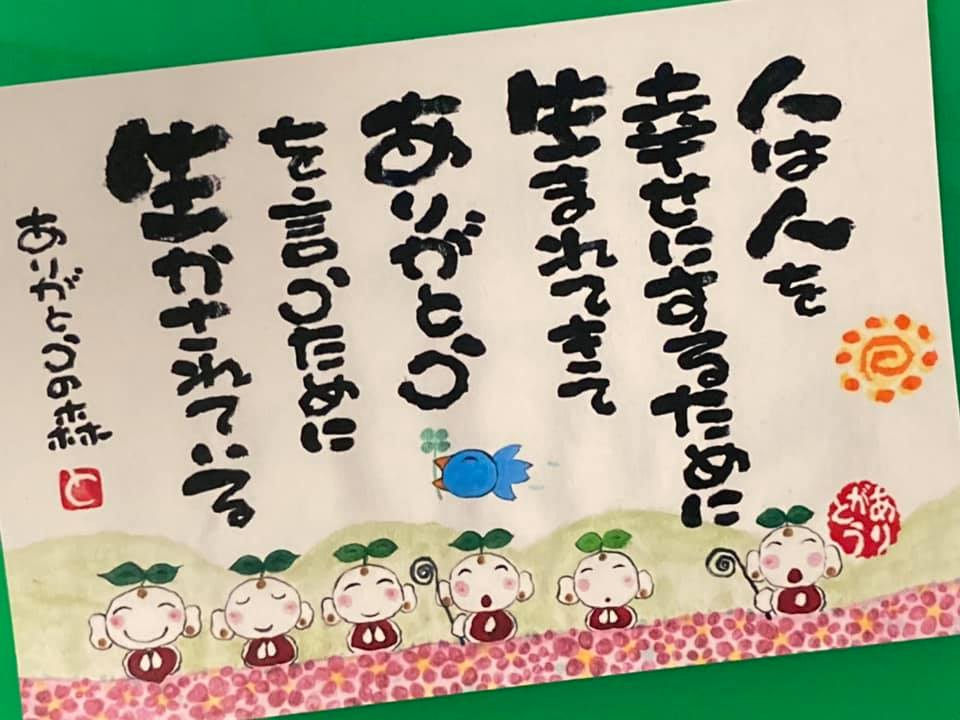 人は人を
幸せにするために
生まれてきて
ありがとう
を言うために
生かされている
ありがとうの森
と
ありがとう